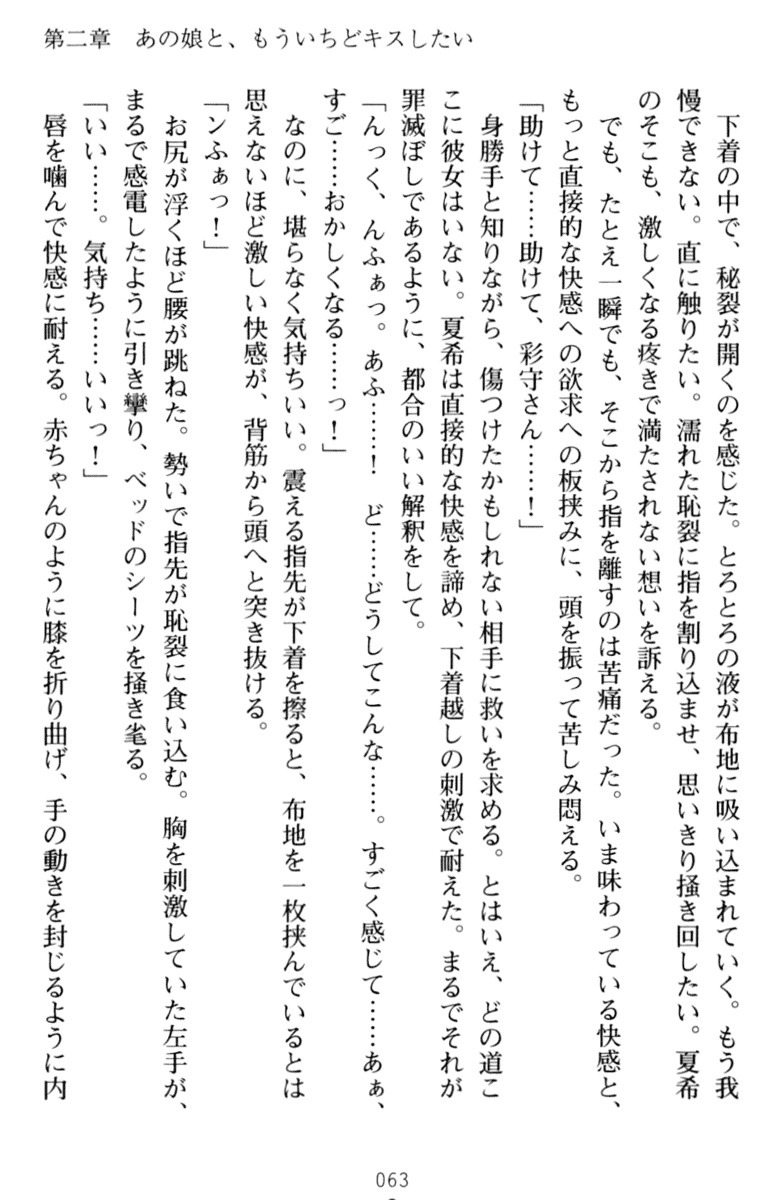 第二章　あの娘と、もういちどキスしたい
下着の中で、秘裂が開くのを感じた。とろとろの液が布地に吸い込まれていく。もう我
慢できない。直に触りたい。濡れた恥裂に指を割り込ませ、思いきり掻き回したい。夏希
のそこも、激しくなる疼きで満たされない想いを訴える。
でも、たとえ一瞬でも、そこから指を離すのは苦痛だった。いま味わっている快感と、
もっと直接的な快感への欲求への板挟みに、頭を振って苦しみ悶える。
「助けて……助けて、彩守さん……！」
身勝手と知りながら、傷つけたかもしれない相手に救いを求める。とはいえ、どの道こ
こに彼女はいない。夏希は直接的な快感を諦め、下着越しの刺激で耐えた。まるでそれが
罪滅ぼしであるように、都合のいい解釈をして。
「んっく、んふぁっ。あふ……！　ど……どうしてこんな……。すごく感じて……あぁ、
すご……おかしくなる……っ！」
なのに、堪らなく気持ちいい。震える指先が下着を擦ると、布地を一枚挟んでいるとは
思えないほど激しい快感が、背筋から頭へと突き抜ける。
「ンふぁっ！」
お尻が浮くほど腰が跳ねた。勢いで指先が恥裂に食い込む。胸を刺激していた左手が、
まるで感電したように引き攣り、ベッドのシーツを掻き毟る。
「いい……。気持ち……いいっ！」
唇を噛んで快感に耐える。赤ちゃんのように膝を折り曲げ、手の動きを封じるように内
063